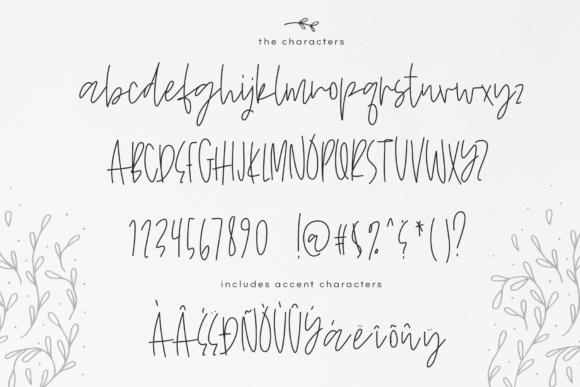 the characters
abcdefghijklmnopqrstuvwxyz
ABCDEFGHIJKLMNOPQRSTUVWXYZ
1234567890 !@#$%^&*()?
includes accent characters
ÀÂÉËÐÑÖÙÛÝáëîõûÿ